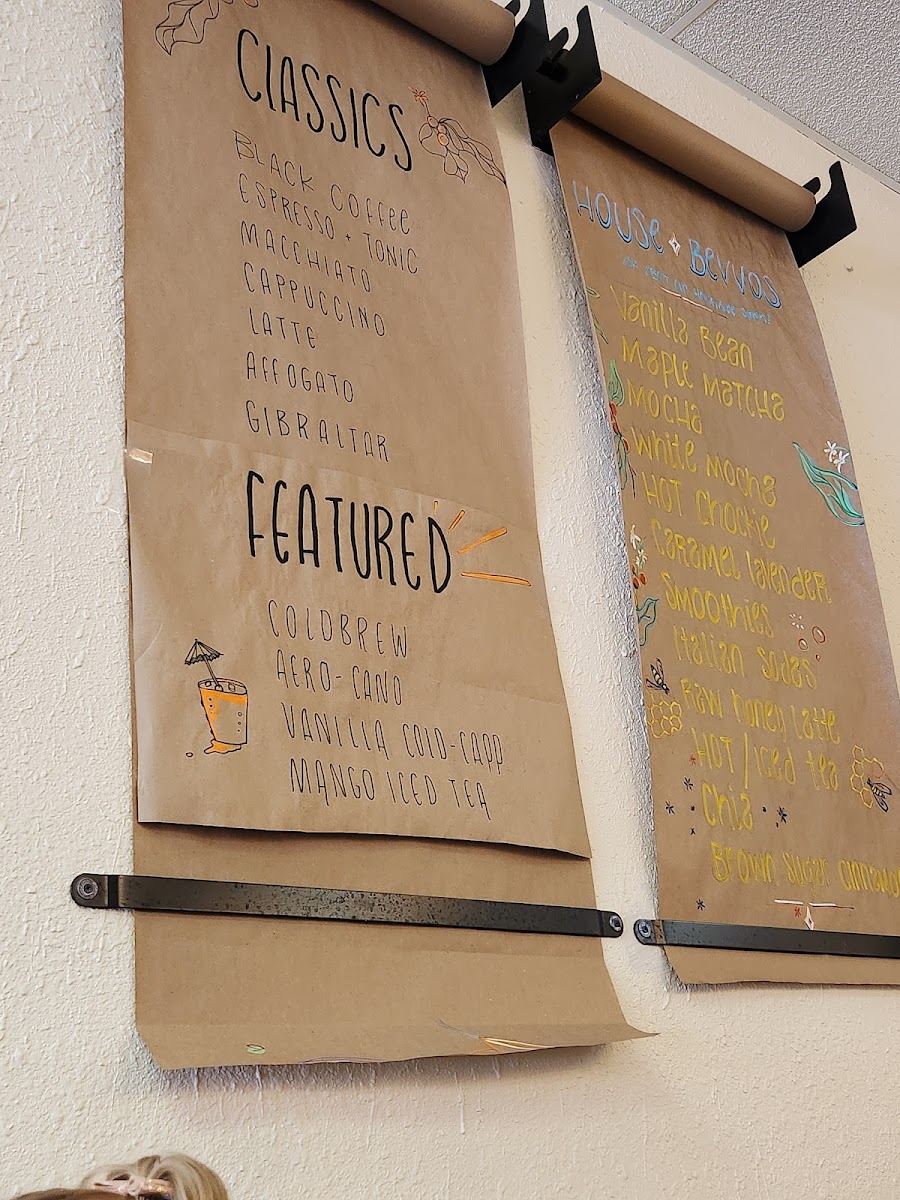 CLASSICS
BLACK COFFEE
ESPRESSO + TONIC
MACCHIATO
CAPPUCCINO
LATTE
AFFOGATO
GIBRALTAR
FEATURED
COLDBREW
AERO-CANO
VANILLA COLD-CAPP
MANGO ICED TEA
HOUSE BEVVOS
Vanilla Bean
Maple Matcha
Mocha
White Mocha
HOT Chockie
Caramel lavender
Smoothies
Italian Sodas
Raw honey latte
HOT/iced tea
Chia
Brown sugar cinnamo